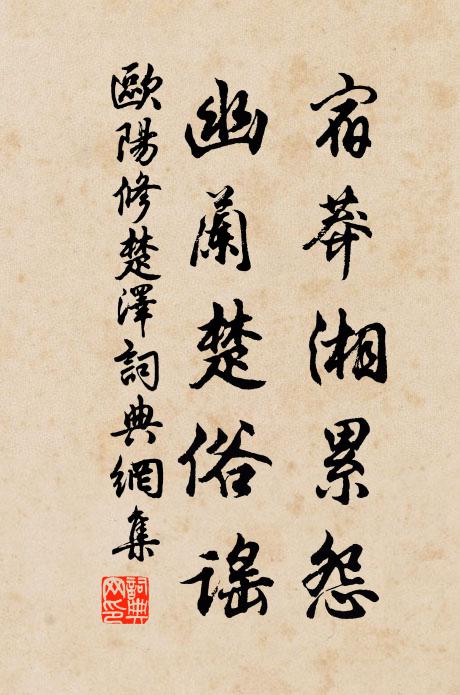 宿莽湘累怨
幽蘭楚俗謠
歐陽修楚澤詞典網集
詞典網印